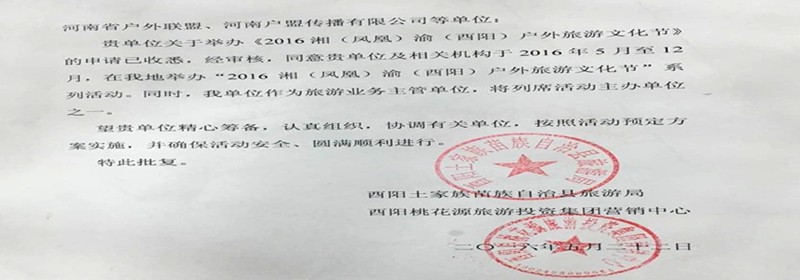 河南省户外联盟、河南户盟传播有限公司等单位:
贵单位关于举办《2016湘(凤凰)渝(酉阳)户外旅游文化节》
的申请已收悉,经审核,同意贵单位及相关机构于2016年5月至12
月,在我地举办“2016湘(凤凰)渝(酉阳)户外旅游文化节”系
列活动。同时,我单位作为旅游业务主管单位,将列席活动主办单位
之一。
望贵单位精心筹备,认真组织,协调有关单位,按照活动预定方
案实施,并确保活动安全、圆满顺利进行。
特此批复。
酉阳土家族苗族自治县旅游局
酉阳土家族苗族自治县旅游局
酉阳桃花源旅游投资集团营销中心
二〇一六年五月二十二日